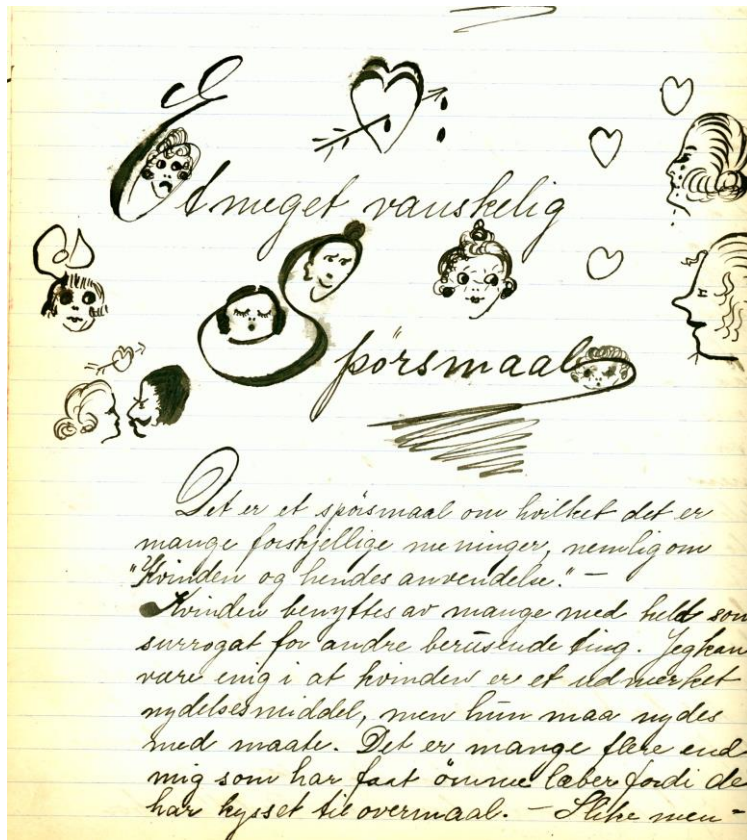 Et meget vanskelig
Spörsmaal
Det er et spörsmaal om hvilket det er
mange forskjellige meninger, nemlig om
"Kvinden og hendes anvendelse." —
Kvinden benyttes av mange med held som
surrogat for andre berusende ting. Jeg kan
være enig i at kvinden er et udmerket
nydelsesmiddel, men hun maa nydes
med maate. Det er mange flere end
mig som har faat ömme læber fordi de
har kysset til overmaal. — Slike men-